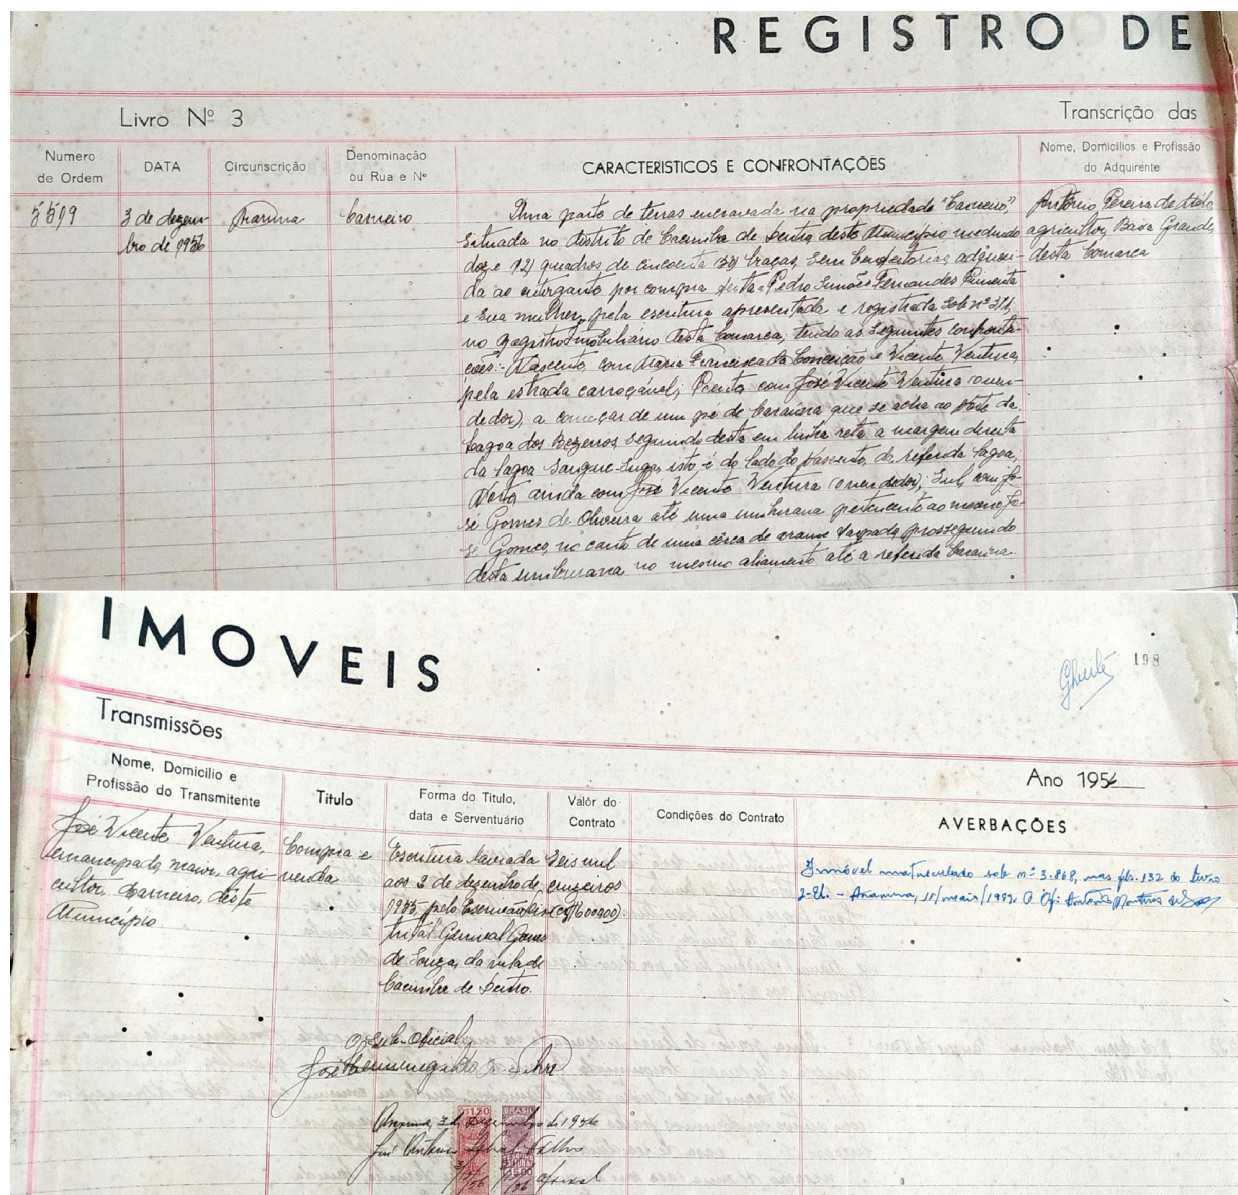 REGISTRO DE
Livro Nº 3
Transcrição das
Numero
de Ordem
DATA
Circunscrição
Denominação
ou Rua e Nº
CARACTERISTICOS E CONFRONTAÇÕES
Nome, Domicilios e Profissão
do Adquirente
5519
3 de dezem-
bro de 1956
Araruna
Carneiro
Uma parte de terras encravada na propriedade "Carneiro",
situada no distrito de Cacimba de Dentro, deste Municipio medindo
doze (12) quadros de cincoenta (50) braças, sem bemfeitorias, adquiri-
da ao outorgante por compra feita a Pedro Simões Fernandes Pimenta
e sua mulher, pela escritura apresentada e registrada sob nº 311,
no registro Imobiliário desta Comarca, tendo as seguintes confronta-
ções:- Nascente, com Maria Francisca da Conceição e Vicente Ventura,
pela estrada carroçável; Poente com José Vicente Ventura (o ven-
dedor), a começar de um pé de baraúna que se acha ao Norte da
Lagoa dos Bezerros seguindo desta em linha reta a margem direita
da lagoa Sangue-Suga, isto, é do lado do Nascente, da referida lagoa,
Norte, ainda com José Vicente Ventura (o vendedor); Sul, com Jo-
sé Gomes de Oliveira até uma umburana pertencente ao mesmo Jo-
sé Gomes, no canto de uma cêrca de arame farpado, prosseguindo
desta umburana no mesmo alinamento até a referida baraúna.
Antonio Pereira de Melo,
agricultor, Baixa Grande,
desta Comarca
IMOVEIS
198
Transmissões
Ano 1956
Nome, Domicilio e
Profissão do Transmitente
Titulo
Forma do Titulo,
data e Serventuário
Valôr do
Contrato
Condições do Contrato
AVERBAÇÕES
José Vicente Ventura,
emancipado, maior, agri-
cultor, Carneiro, déste
Municipio
Compra e
venda
Escritura lavrada
aos 2 de dezembro de
1955, pelo Escrivão Dis-
trital Genival Gomes
de Souza, da vila de
Cacimba de Dentro.
Seis mil
cruzeiros
(Cr$ 6.000,00).
Imóvel matriculado sob nº 3.868, nas fls. 132 do livro
Araruna, 11/maio/1992. O Of: Antonio Martins de
O Sub-Oficial,
José
Araruna, 3 de Dezembro de 1956
José Antonio
oficial
BRASIL